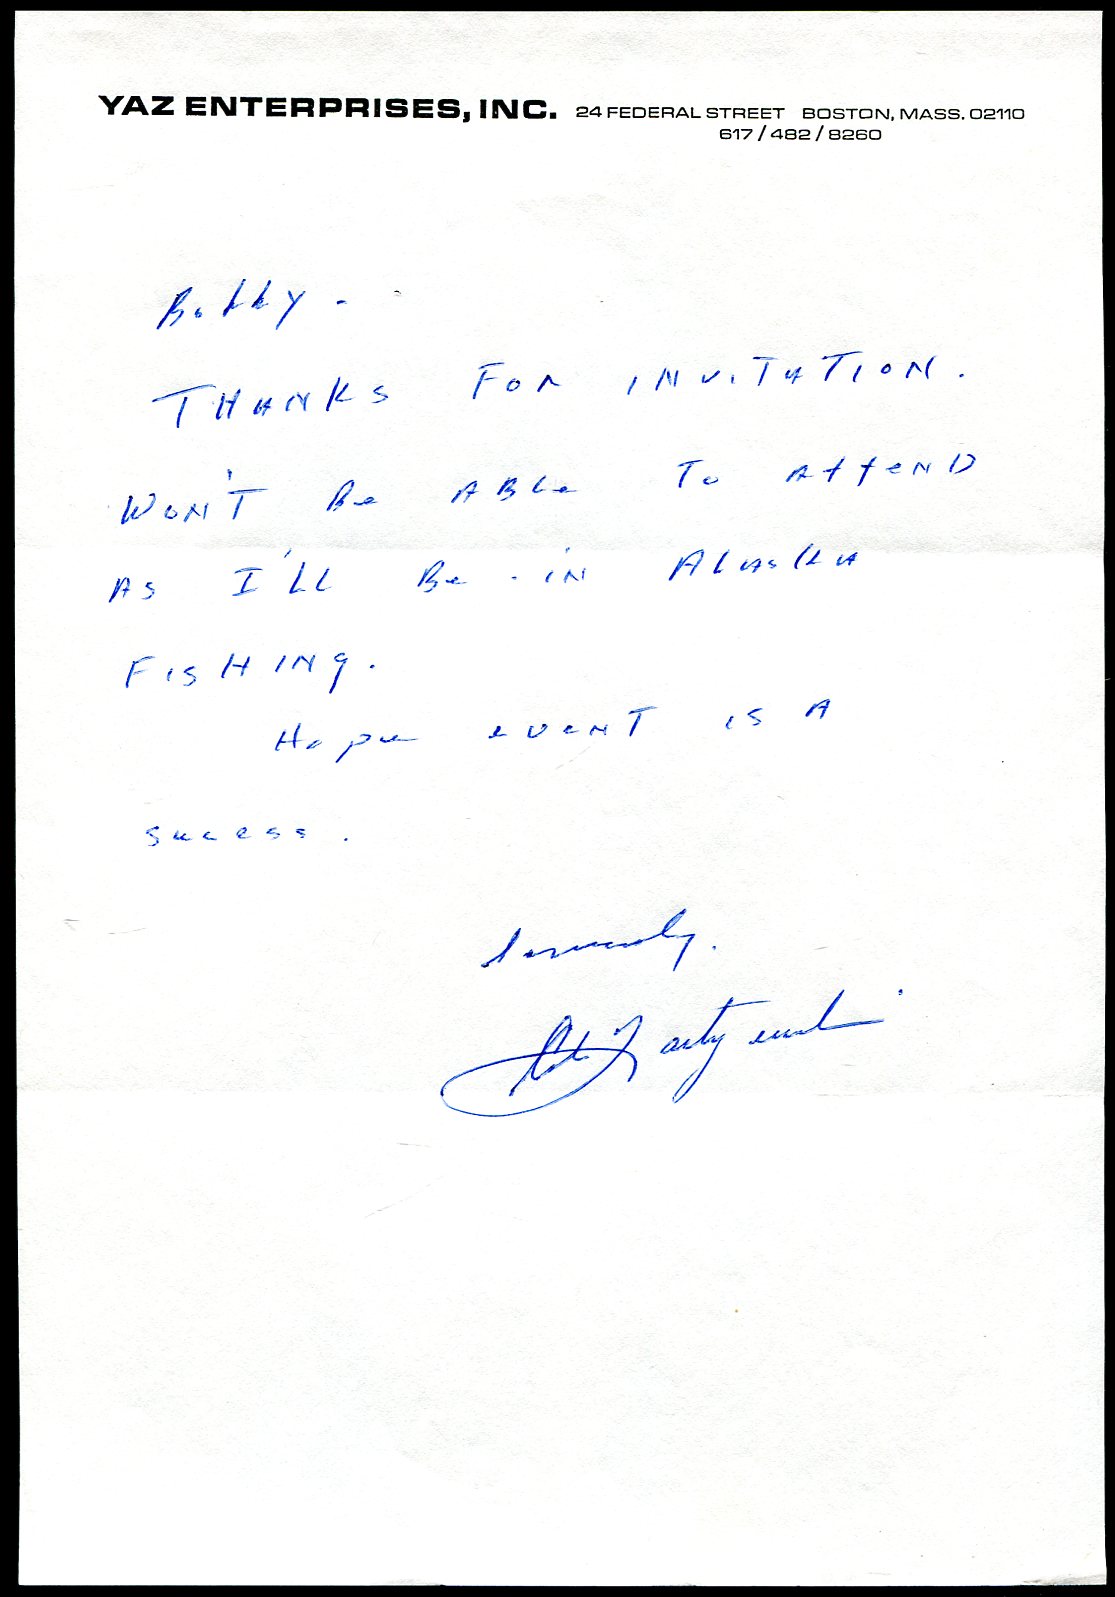 YAZ ENTERPRISES, INC. 24 FEDERAL STREET BOSTON, MASS. 02110
617/482/8260
Bobby -
THANKS FOR INVITATION.
WON'T Be ABLe To AttenD
As I'LL Be in ALASKA
FISHING.
Hope eveNT is A
sucess.
Sincerely,
Carl Yastrzemski